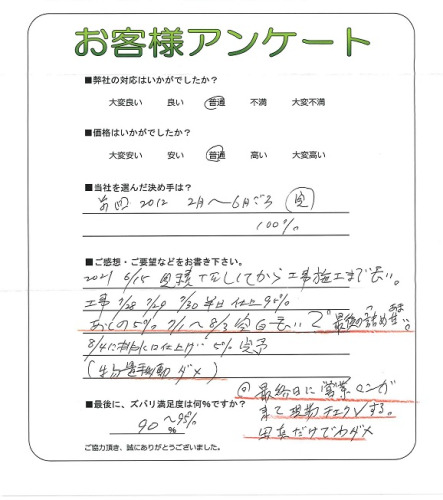 お客様アンケート
■弊社の対応はいかがでしたか？
大変良い 良い 普通 不満 大変不満
■価格はいかがでしたか？
大変安い 安い 普通 高い 大変高い
■当社を選んだ決め手は？
前回 2012 2月〜6月ごろ
100%
■ご感想・ご要望などをお書き下さい。
2021 6/15 見積 してから工事施工まで長い。
工事 7/28 7/29 7/30 半日 仕上 95%
あとの5% 〜8/3 最後の詰め甘い。
8/4に排水口仕上げ‥ 5% 完了
ダメ)
回 最終日に営業マンが
来て現場チェックする。
写真だけでわダメ
■最後に、ズバリ満足度は何%ですか？
90〜95%
%
ご協力頂き、誠にありがとうございました。